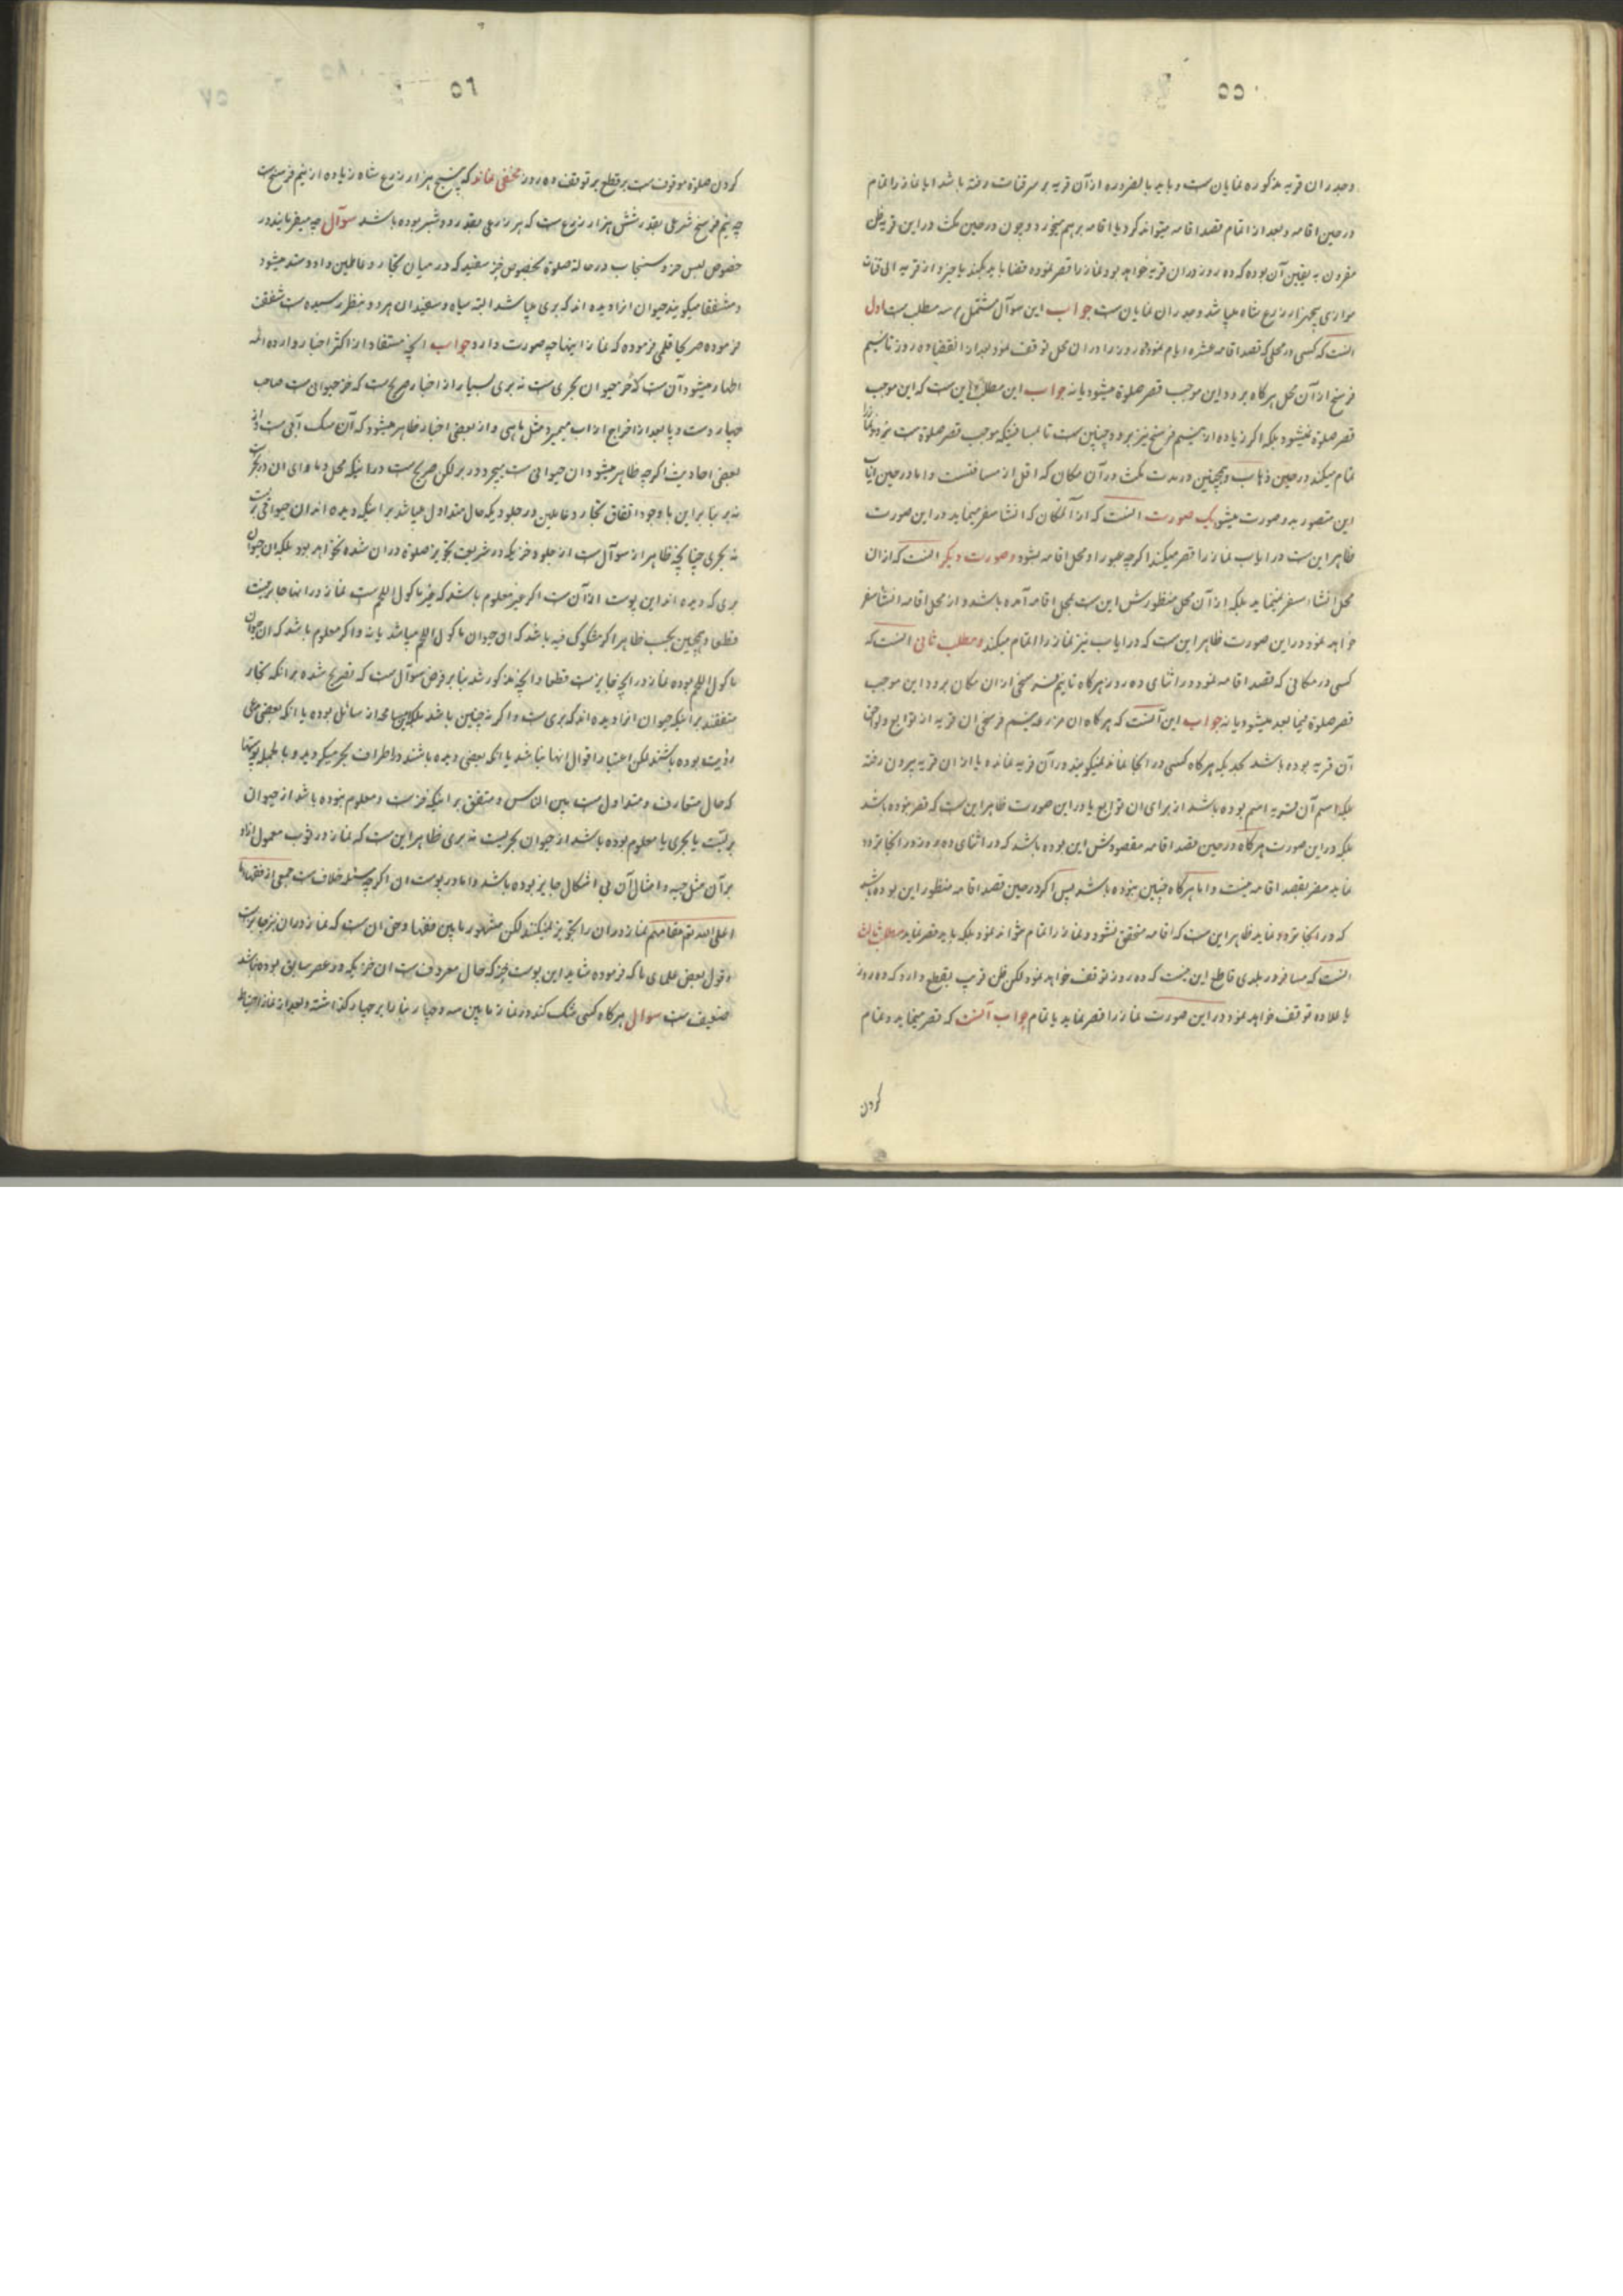 ۵۵
وجدران قریه مذکوره نمایان ست و باید بالضروره از آن قریه بر سر قنات رفته باشد ایا نماز را تمام
در حین اقامه و بعد از اتمام قصد اقامه میتواند کرد یا اقامه بر هم میخورد و چون در حین مکث در این قریه ظن
مقرون به یقین آن بوده که ده روز در ان قریه خواهد بود نماز را قصر نموده قضا باید بکند یا خیر و از قریه الی قنات
موازی پنجهزار زرع شاه میباشد و جدران نمایان ست جواب این سوآل مشتمل بر سه مطلب ست اول
انست که کسی در محلی که قصد اقامه عشره ایام نموده روز را در ان محل توقف نمود بعد از انقضاء ده روز تا نیم
فرسخ از آن محل هر کاه برود این موجب قصر صلوة میشود یا نه جواب این مطلب این ست که این موجب
قصر صلوة نمیشود بلکه اکر زیاده از نیم فرسخ نیز برود چنین ست تا بمسافتیکه موجب قصر صلوة ست نرود نماز را
تمام میکند در حین ذهاب و همچنین در مدت مکث در آن مکان که اقل از مسافتست و اما در حین ایاب
این متصور بدو صورت میشود یک صورت انست که از آنمکان که انشا سفر مینماید در این صورت
ظاهر این ست در ایاب نماز را قصر میکند اکرچه عبور او محل اقامه بشود و صورت دیکر انست که از ان
محل انشاء سفر نمینماید بلکه از آن محل منظورش این ست بمحل اقامه آمده باشد و از محل اقامه انشا سفر
خواهد نمود در این صورت ظاهر این ست که در ایاب نیز نماز را اتمام میکند و مطلب ثانی انست که
کسی در مکانی که قصد اقامه نمود در اثنای ده روز هر کاه تا نیم فرسخی از ان مکان برود این موجب
قصر صلوة فیما بعد میشود یا نه جواب این آنست که هر کاه ان مزرعه نیم فرسخی ان قریه از توابع و لواحق
آن قریه بوده باشد بحدیکه هر کاه کسی در انجا نماند نمیکویند در آن قریه نمانده یا از ان قریه بیرون رفته
بلکه اسم آن قریه اسم بوده باشد از برای ان توابع یا در این صورت ظاهر این ست که قصر نبوده باشد
بلکه در این صورت هر کاه در حین قصد اقامه مقصودش این بوده باشد که در اثنای ده روز در انجا تردد
نماید مضر بقصد اقامه نیست و اما هر کاه چنین نبوده باشد پس اکر در حین قصد اقامه منظور این بوده باشد
که در انجا تردد نماید ظاهر این ست که اقامه متحقق نشود و نماز را تمام نتواند نمود بلکه باید قصر نماید مطلب ثالث
انست که مسافر در بلدی قاطع این نیست که ده روز توقف خواهد نمود لکن ظن قریب بقطع دارد که ده روز
یا علاوه توقف خواهد نمود در این صورت نماز را قصر نماید یا تمام جواب آنست که قصر مینماید و تمام
کردن
۵۶
کردن صلوة موقوف ست بر قطع بر توقف ده روز مخفی نماند که پنج هزار زرع شاه زیاده از نیم فرسخ ست
چه نیم فرسخ شرعی بقدر شش هزار زرع ست که هر زرعی بقدر دو شبر بوده باشد سوآل چه میفرمایند در
خصوص لبس خز و سنجاب در حالة صلوة بخصوص خز سفید که در میان تجار و عاملین داد و ستد میشود
و مشفقا میکویند حیوان انرا دیده اند که بری میباشد البته سیاه و سفید ان هر دو بنظر رسیده ست شفقت
فرموده صریحا قلمی فرموده که نماز اینها چه صورت دارد جواب انچه مستفاد از اکثر اخبار وارده ائمه
اطهار میشود آن ست که خز حیوان بحری ست نه بری بسیار از اخبار صریح ست که خز حیوانی ست صاحب
چهار دست و پا بعد از اخراج از اب میمیرد مثل ماهی و از بعضی اخبار ظاهر میشود که آن سک آبی ست و از
بعضی احادیث اکرچه ظاهر میشود ان حیوانی ست بیچرد در بر لکن صریح ست در اینکه محل و ماوای ان در بحر ست
نه بر بنابراین با وجود اتفاق تجار و عاملین در جلودیکه حال متداول میباشد بر اینکه دیده اند ان حیوانی بری ست
نه بحری چنانچه ظاهر از سوآل ست از جلود خزیکه در شریعت تجویز صلوة در ان شده نخواهد بود بلکه ان حیوان
بری که دیده اند این پوست از آن ست اکر خیر معلوم باشد که غیر ماکول اللحم ست نماز در انها جایز نیست
قطعا و همچنین بحسب ظاهر اکر مشکوک فیه باشد که ان حیوان ماکول اللحم میباشد یا نه و اکر معلوم باشد که ان حیوان
ماکول اللحم بوده نماز در انچه جایزست قطعا و انچه مذکور شد بنا بر فرض سوآل ست که تصریح شده بر انکه تجار
متفقند بر اینکه حیوان انرا دیده اند که بری ست و اکر نه چنین باشد بلکه این مسامحه از سائل بوده یا انکه بعضی مدعی
رؤیت بوده باشند لکن اعتبار اقوال انها نباشد یا انکه بعضی دیده باشند در اطراف بحر میکردید و بالجمله پوستها
که حال متعارف و متداول ست بین الناس و متفق بر اینکه خزست و معلوم نبوده باشد از حیوان
بریست یا بحری یا معلوم بوده باشد از حیوان بحریست نه بری ظاهر این ست که نماز در ثوب معمول از او
بر آن مثل جبه و امثال آن بی اشکال جایز بوده باشد و اما در پوست ان اکرچه مسئله خلاف ست جمعی از فقهاء
اعلی الله تع مقامهم نماز در ان را تجویز نمیکنند لکن مشهور مابین فقها و حق ان ست که نماز در ان نیز جایزست
و قول بعض علمای ما که فرموده شاید این پوست خز که حال معروف ست ان خز یکه در عصر سابق بوده نباشد
ضعیف ست سوال هر کاه کسی شک کند در نماز مابین سه و چهار بنا را بر چهار کذاشته و بعد از نماز احتیاط